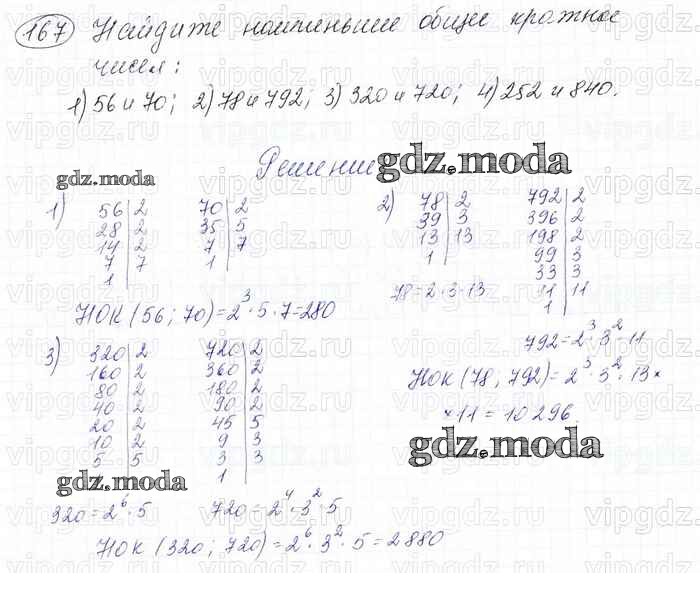 167 Найдите наименьшее общее кратное
чисел:
1) 56 и 70; 2) 78 и 792; 3) 320 и 720; 4) 252 и 840.
Решение
gdz.moda
gdz.moda
1)
56 | 2
28 | 2
14 | 2
7 | 7
1
70 | 2
35 | 5
7 | 7
1
НОК (56; 70) = 2³ · 5 · 7 = 280
2)
78 | 2
39 | 3
13 | 13
1
78 = 2 · 3 · 13
792 | 2
396 | 2
198 | 2
99 | 3
33 | 3
11 | 11
1
792 = 2³ · 3² · 11
НОК (78; 792) = 2³ · 3² · 13 ×
× 11 = 10 296.
gdz.moda
3)
320 | 2
160 | 2
80 | 2
40 | 2
20 | 2
10 | 2
5 | 5
720 | 2
360 | 2
180 | 2
90 | 2
45 | 5
9 | 3
3 | 3
1
gdz.moda
320 = 2⁶ · 5
720 = 2⁴ · 3² · 5
НОК (320; 720) = 2⁶ · 3² · 5 = 2880